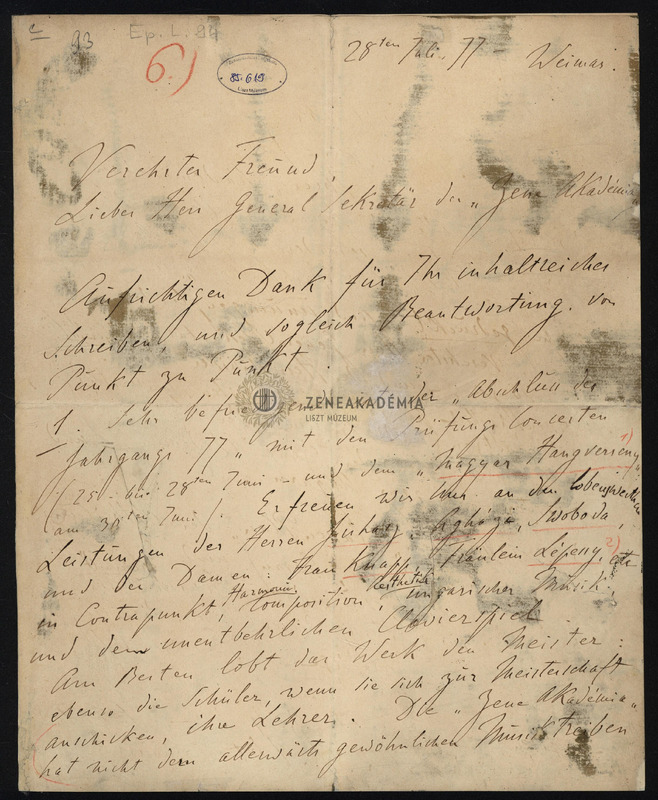 c
93
Ep. L. 84
6.)
85.619
28ten Juli, 77 Weimar.
Verehrter Freund,
Lieber Herr General Sekretär der „Zene Akadémia
Aufrichtigen Dank für Ihr inhaltreiches
Schreiben, und sogleich Beantwortung von
Punkt zu Punkt.
1. Sehr der „Abschluss des
Jahrgangs 77" mit den Prüfungs Concerten
(25 bis 28ten Juni – und dem „Magyar Hangverseny" 1)
am 30ten Juni). Erfreuen wir uns an den lobenswerthen
Leistungen der Herren Agházi, Swoboda,
und der Damen: Frau Knapp, Fräulein Lépeny, 2) etc
in Contrapunkt, Harmonie, Composition, Aesthetik, ungarischer Musik,
und dem unentbehrlichen Clavierspiel.
Am Besten lobt das Werk den Meister:
ebenso die Schüler, wenn sie sich zur Meisterschaft
anschicken, ihre Lehrer. Die „Zene Akadémia"
hat nicht dem allerwärts gewöhnlichen Musiktreiben
ZENEAKADÉMIA
LISZT MÚZEUM